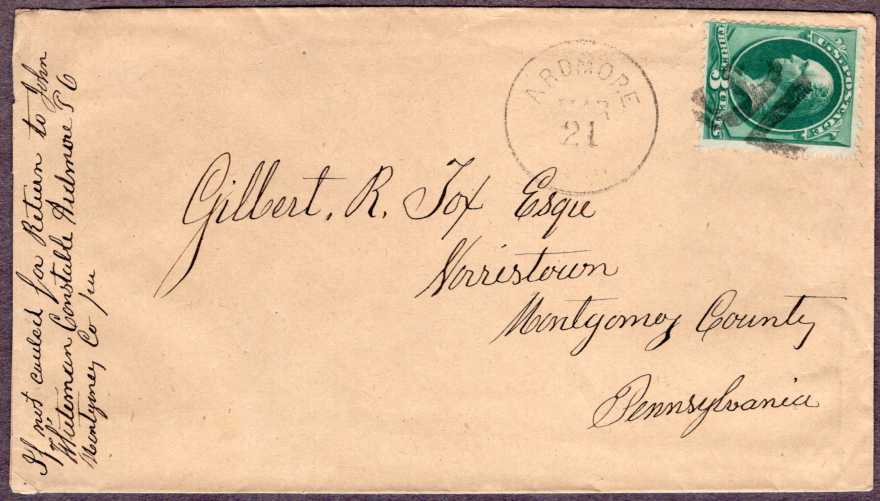 If not called for Return to John
Whiteman Constable Ardmore P O
Montgomery Co
ARDMORE
MAR
21
U.S. POSTAGE
THREE 3 CENTS
Gilbert. R. Fox Esqu
Norristown
Montgomey County
Pennsylvania